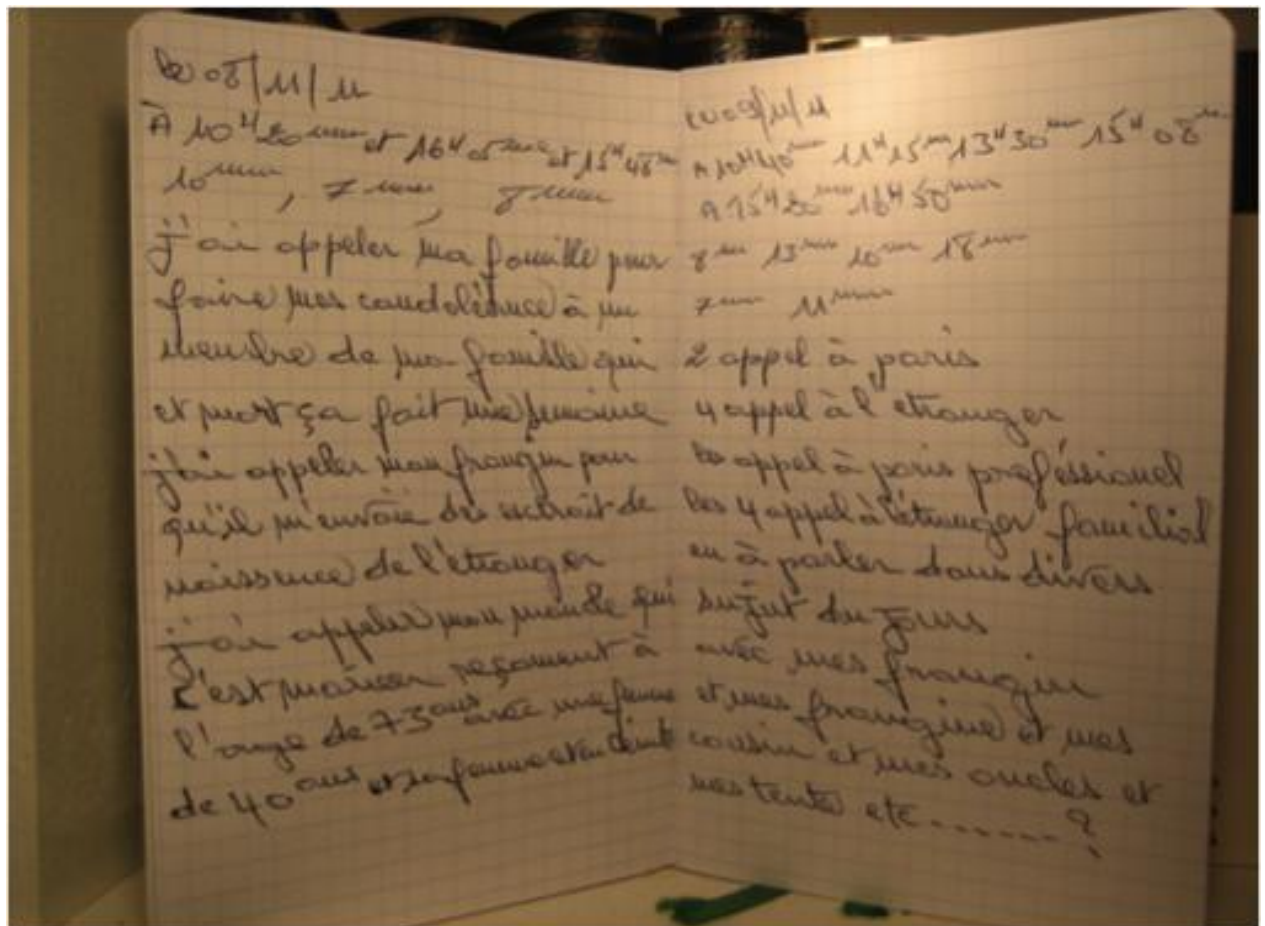 le 08/11/11
À 10H20min et 16H05min et 15H48min
10min, 7min, 8min
j'ai appeler ma famille pour
faire mes condolénce à un
membre de ma famille qui
et mort ça fait une semaine
j'ai appeler mon frangin pour
qu'il m'envoie des extrait de
naissance de l'étranger
j'ai appeler mon qui
c'est marier reçament à
l'ange de 73 ans avec une femme
de 40 ans et sa femme enceinte
le 09/11/11
A 10H40min 11H15min 13H30min 15H08min
A 15H20min 16H50min
8min 13min 10min 18min
7min 11min
2 appel à paris
4 appel à l'etranger
les appel à paris proféssionel
les 4 appel à l'étranger familial
on à parler dans divers
sujet du jours
avec mes frangin
et mes frangine et mes
cousin et mes oncles et
mes tente etc.......?